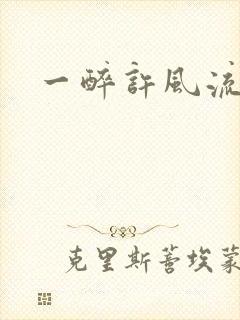 一醉許風流
克里斯蒂埃蒙